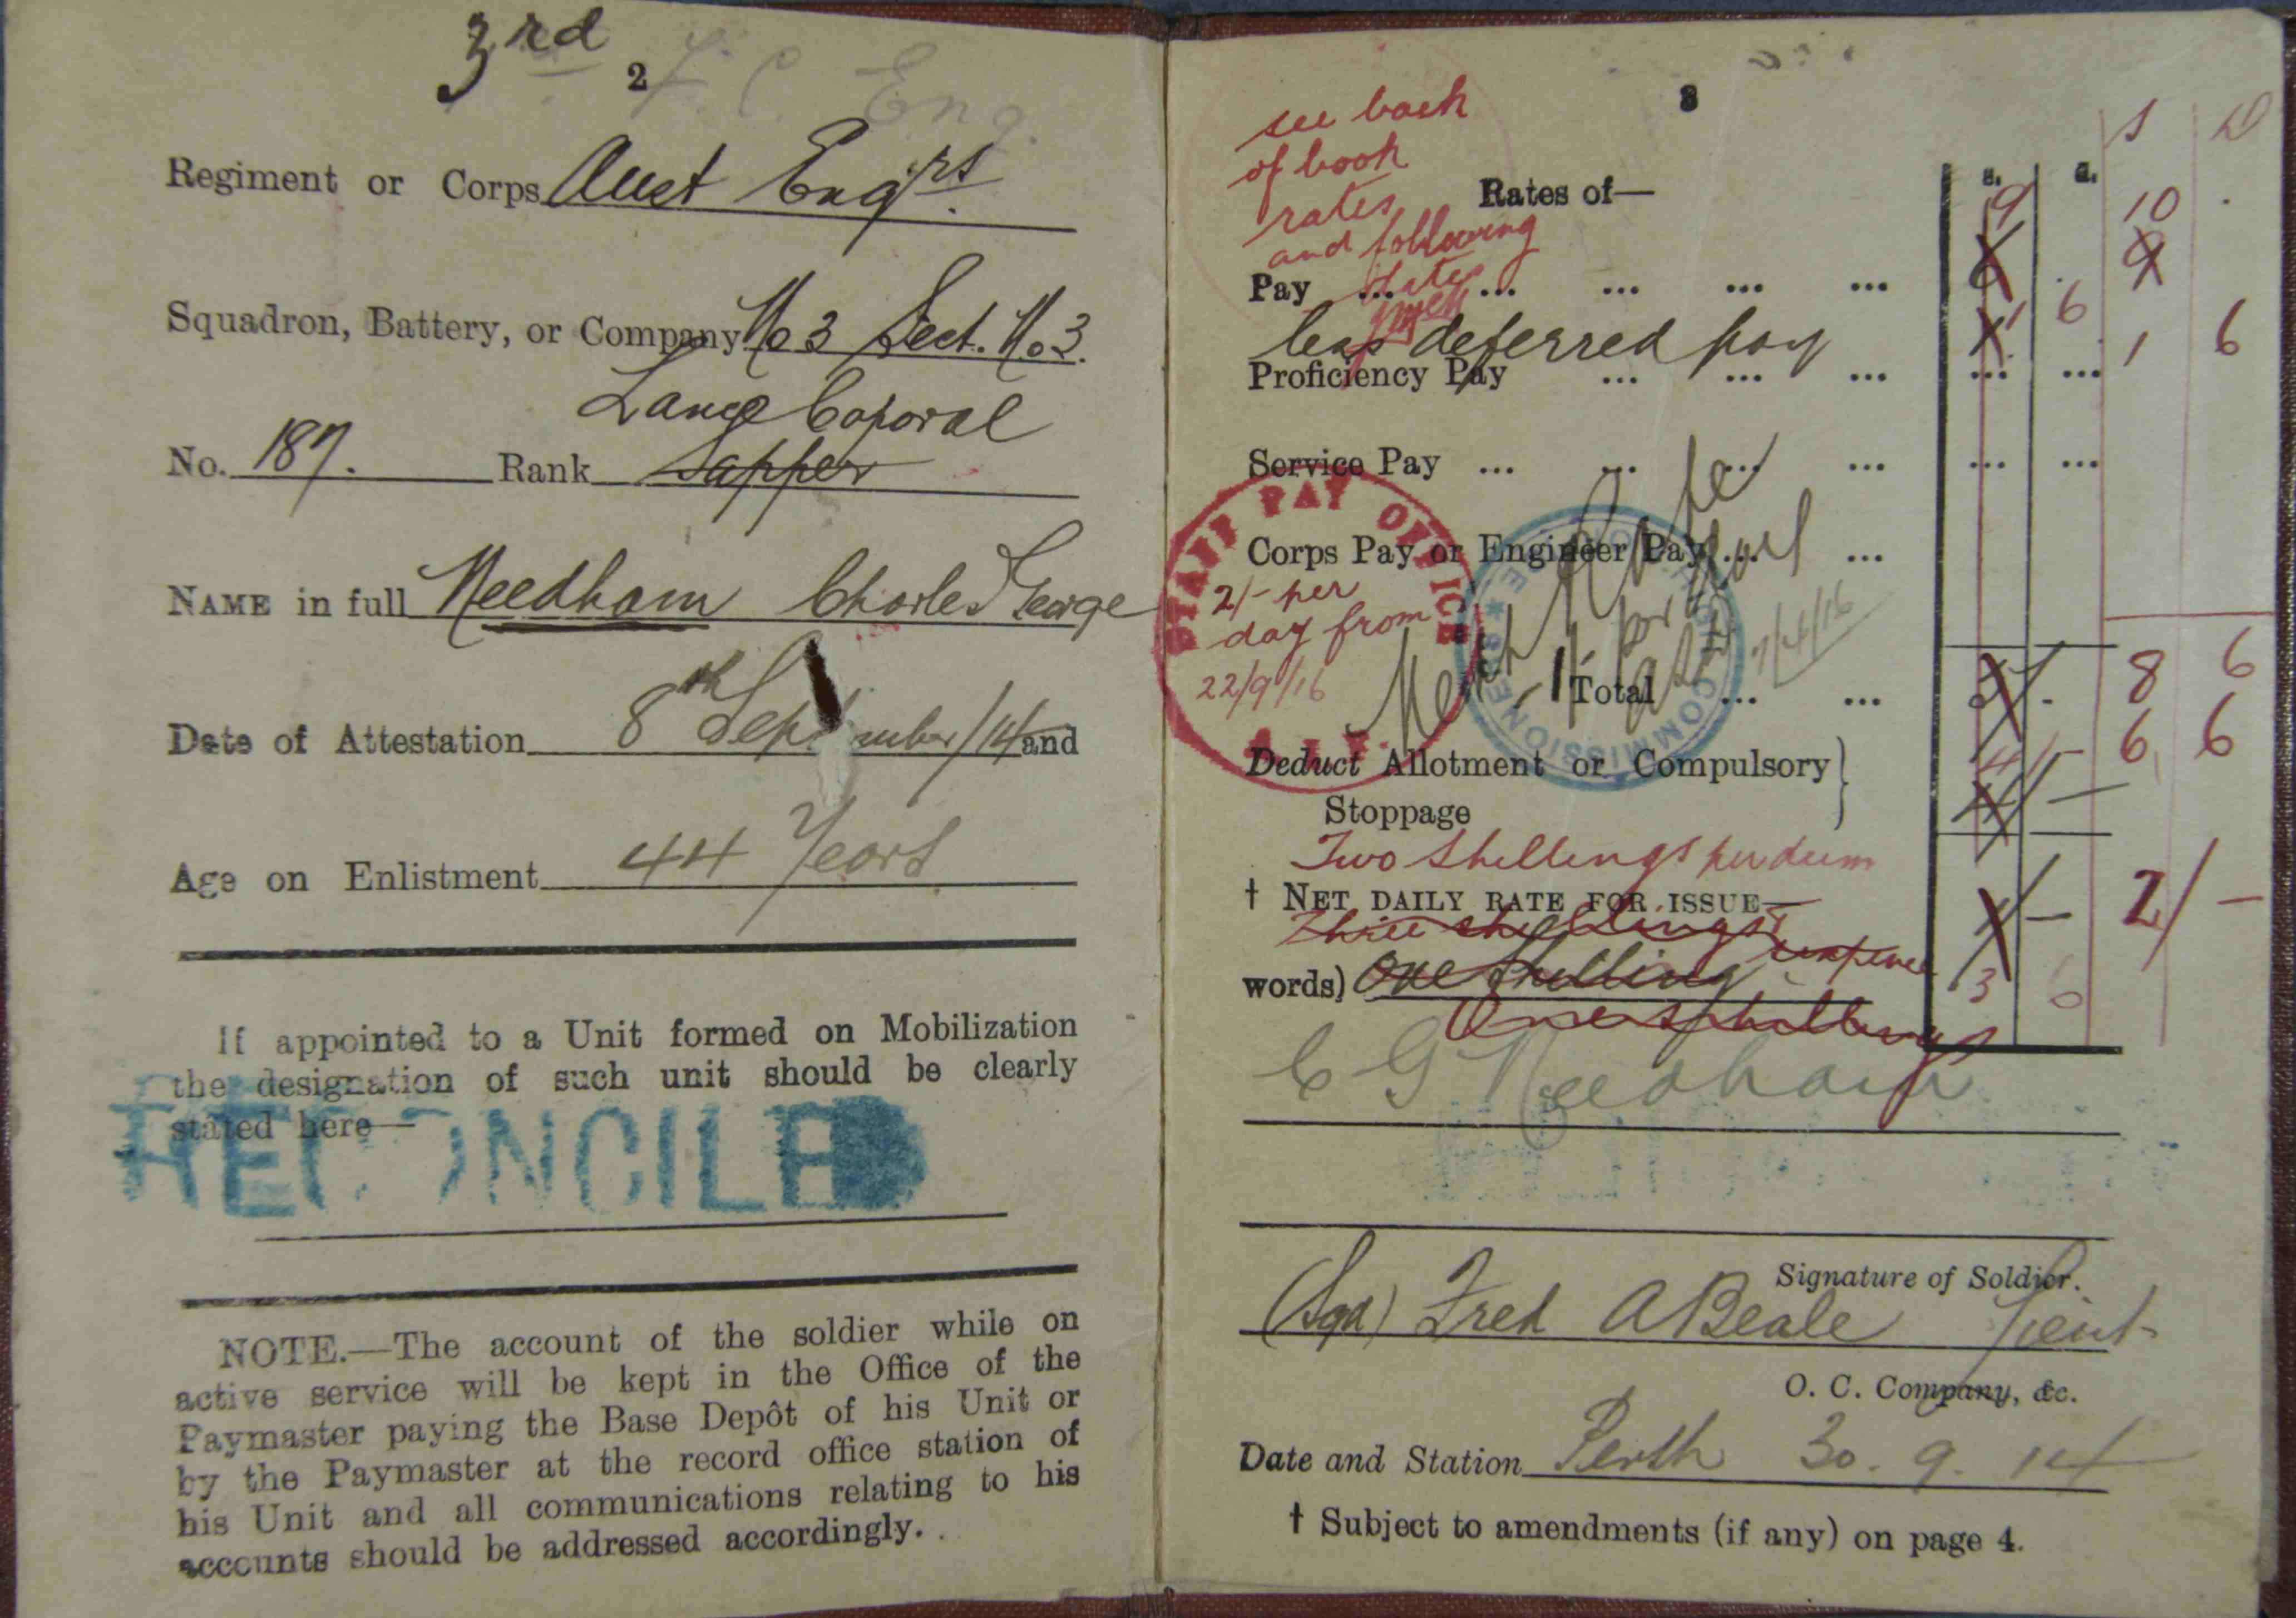 3rd F. C. Eng.
2
Regiment or Corps Aust Engrs.
Squadron, Battery, or Company No 3 Sect. No 3.
Lance Coporal
No. 187. Rank Sapper
NAME in full Needham Charles George
Date of Attestation 8th September/14 and
Age on Enlistment 44 Years
If appointed to a Unit formed on Mobilization
the designation of such unit should be clearly
stated here—
RECONCILED
NOTE.—The account of the soldier while on
active service will be kept in the Office of the
Paymaster paying the Base Depôt of his Unit or
by the Paymaster at the record office station of
his Unit and all communications relating to his
accounts should be addressed accordingly.
3
see back
of book
rates
and following
dates
S D
s. d.
Rates of—
9 10
Pay ... ... ... ... ... 6 9
less deferred pay 1 6 1 6
Proficiency Pay ... ... ... ... ...
Service Pay ... ... ... ... ... ...
STAFF PAY OFFICE
A.I.F.
Corps Pay or Engineer Pay ... ...
2/- per
day from
22/9/16
7/4/16
Total ... ... 5/- 8 6
Deduct Allotment or Compulsory
Stoppage 4/- 6 6
Two shillings per diem
† NET DAILY RATE FOR ISSUE— 1/- 2/-
Three shillings sixpence
words) One Shilling 3
One shilling
C G Needham
Signature of Soldier.
(Sgd) Fred A Beale Lieut
O. C. Company, &c.
Date and Station Perth 30. 9. 14
† Subject to amendments (if any) on page 4.